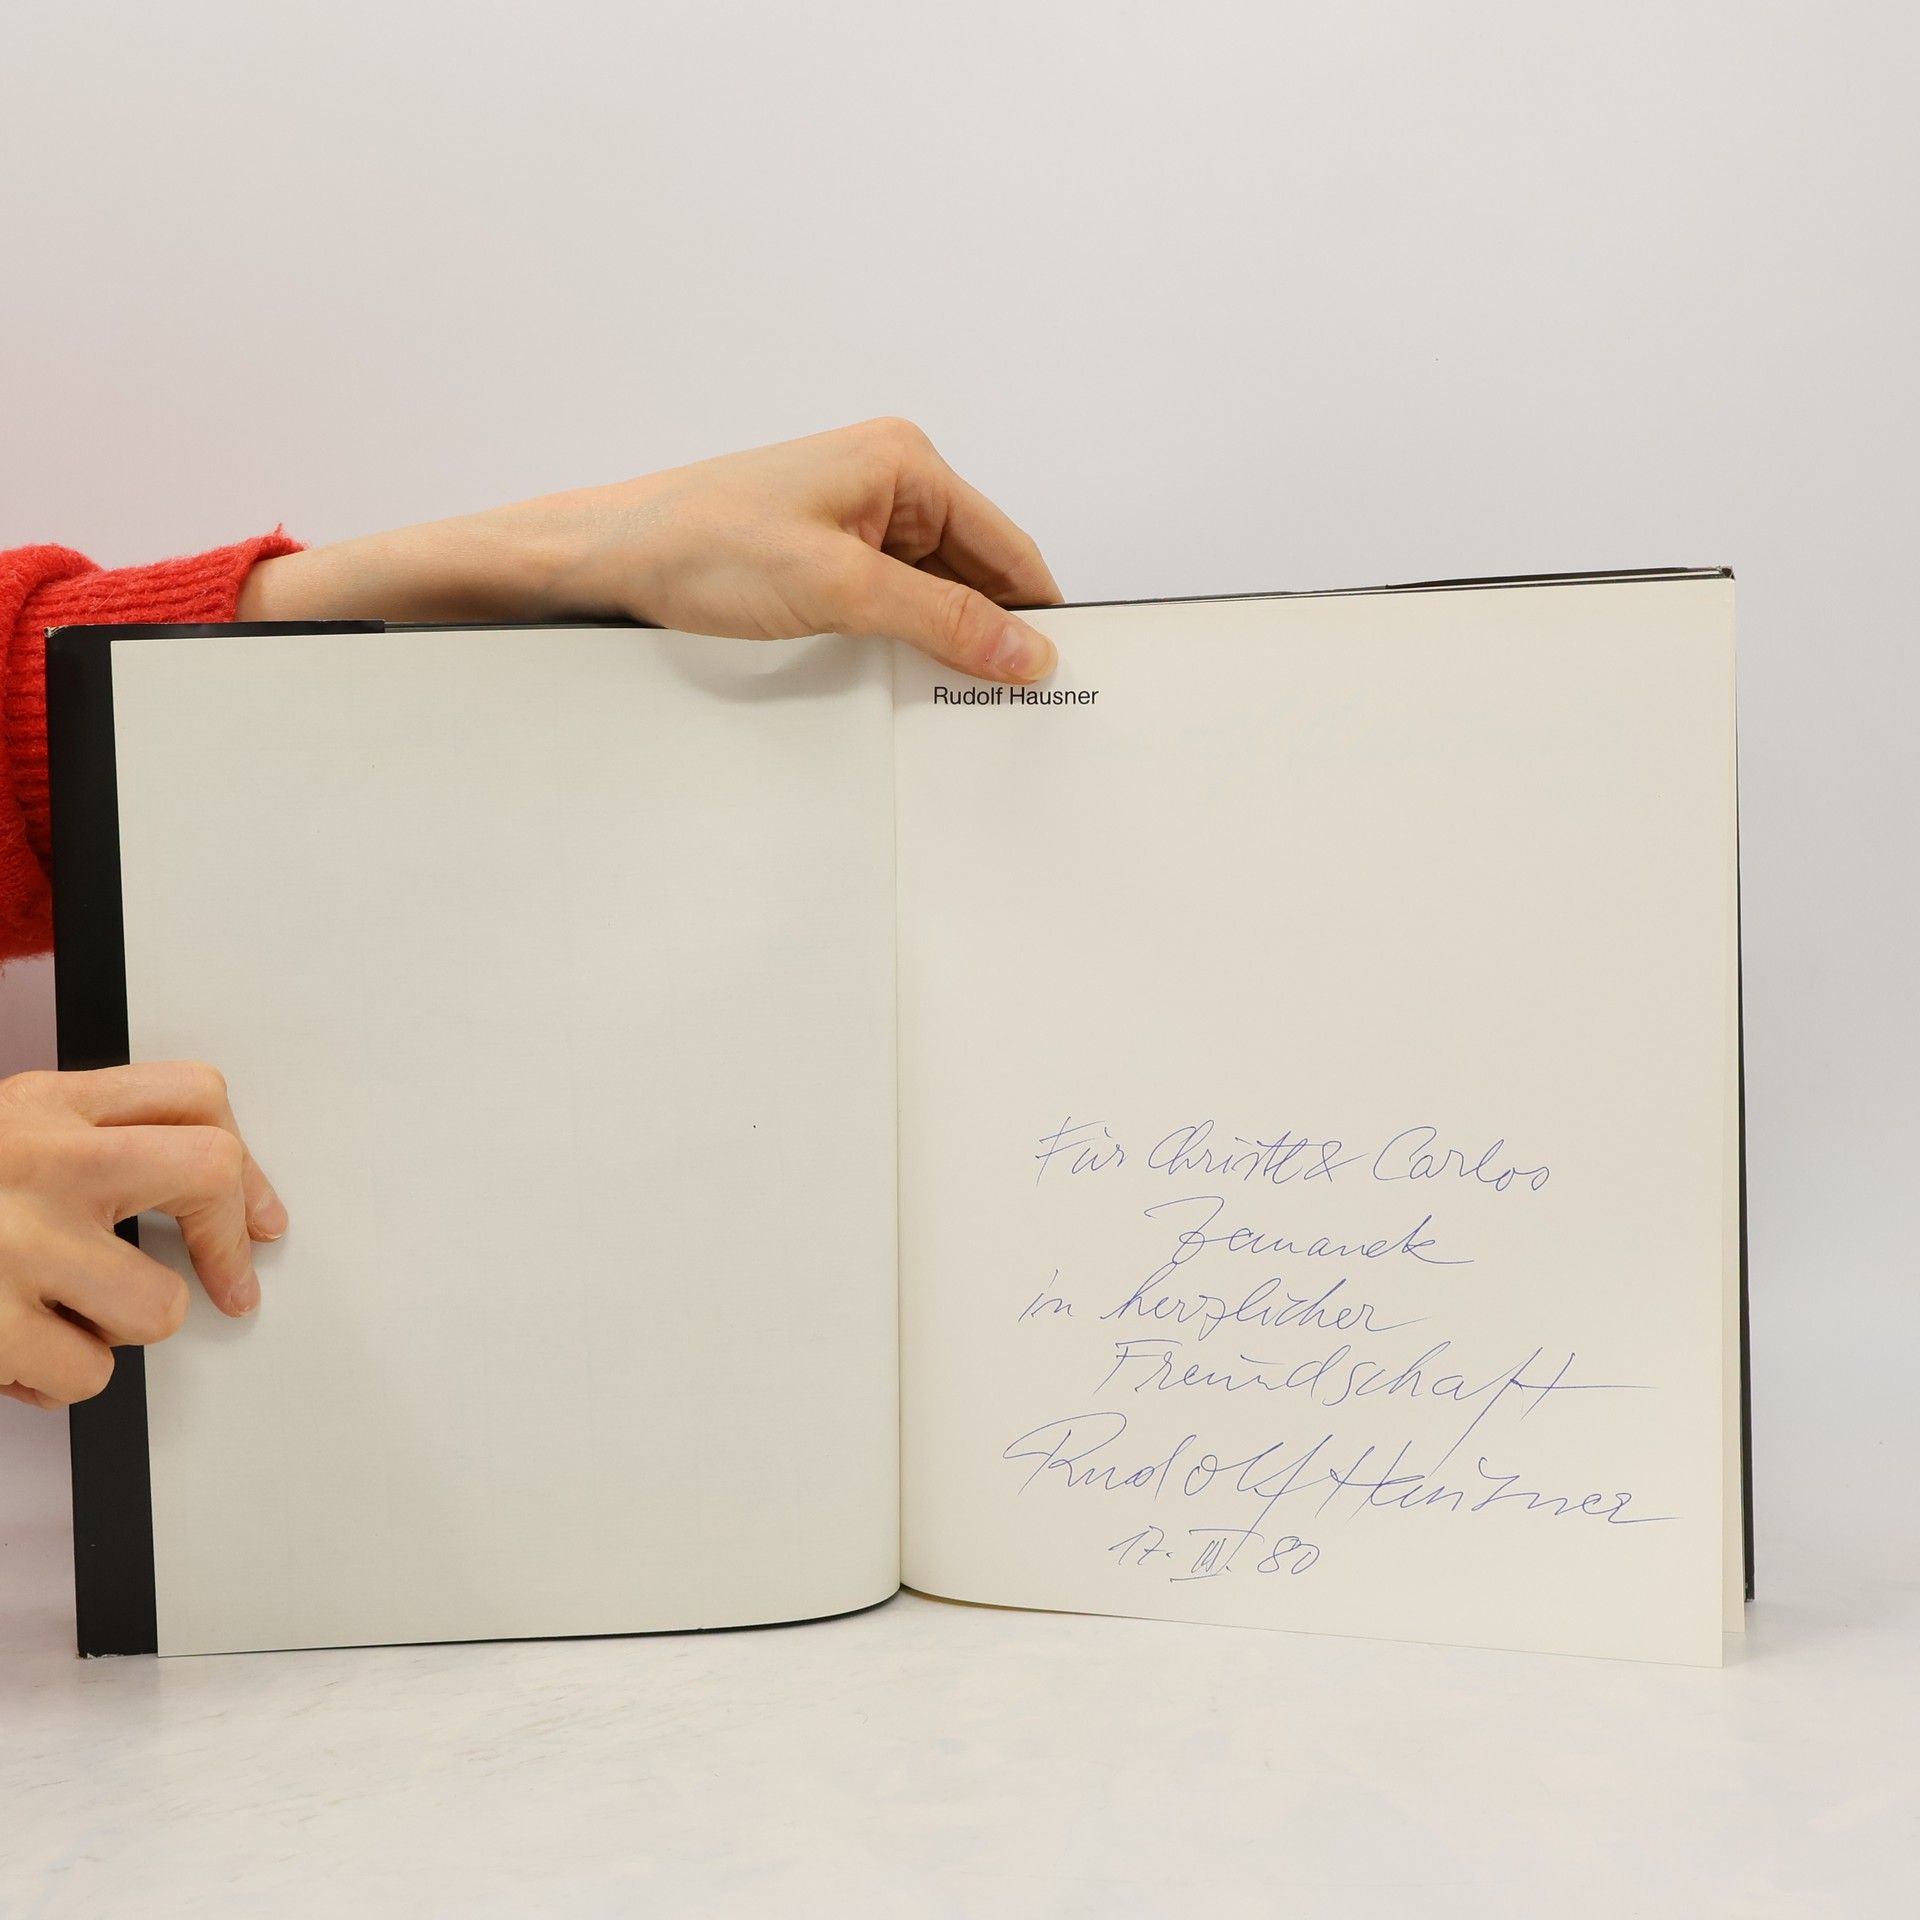 Rudolf Hausner
Für Christl & Carlos
Zemanek
in herzlicher
Freundschaft
Rudolf Hausner
17. III. 80